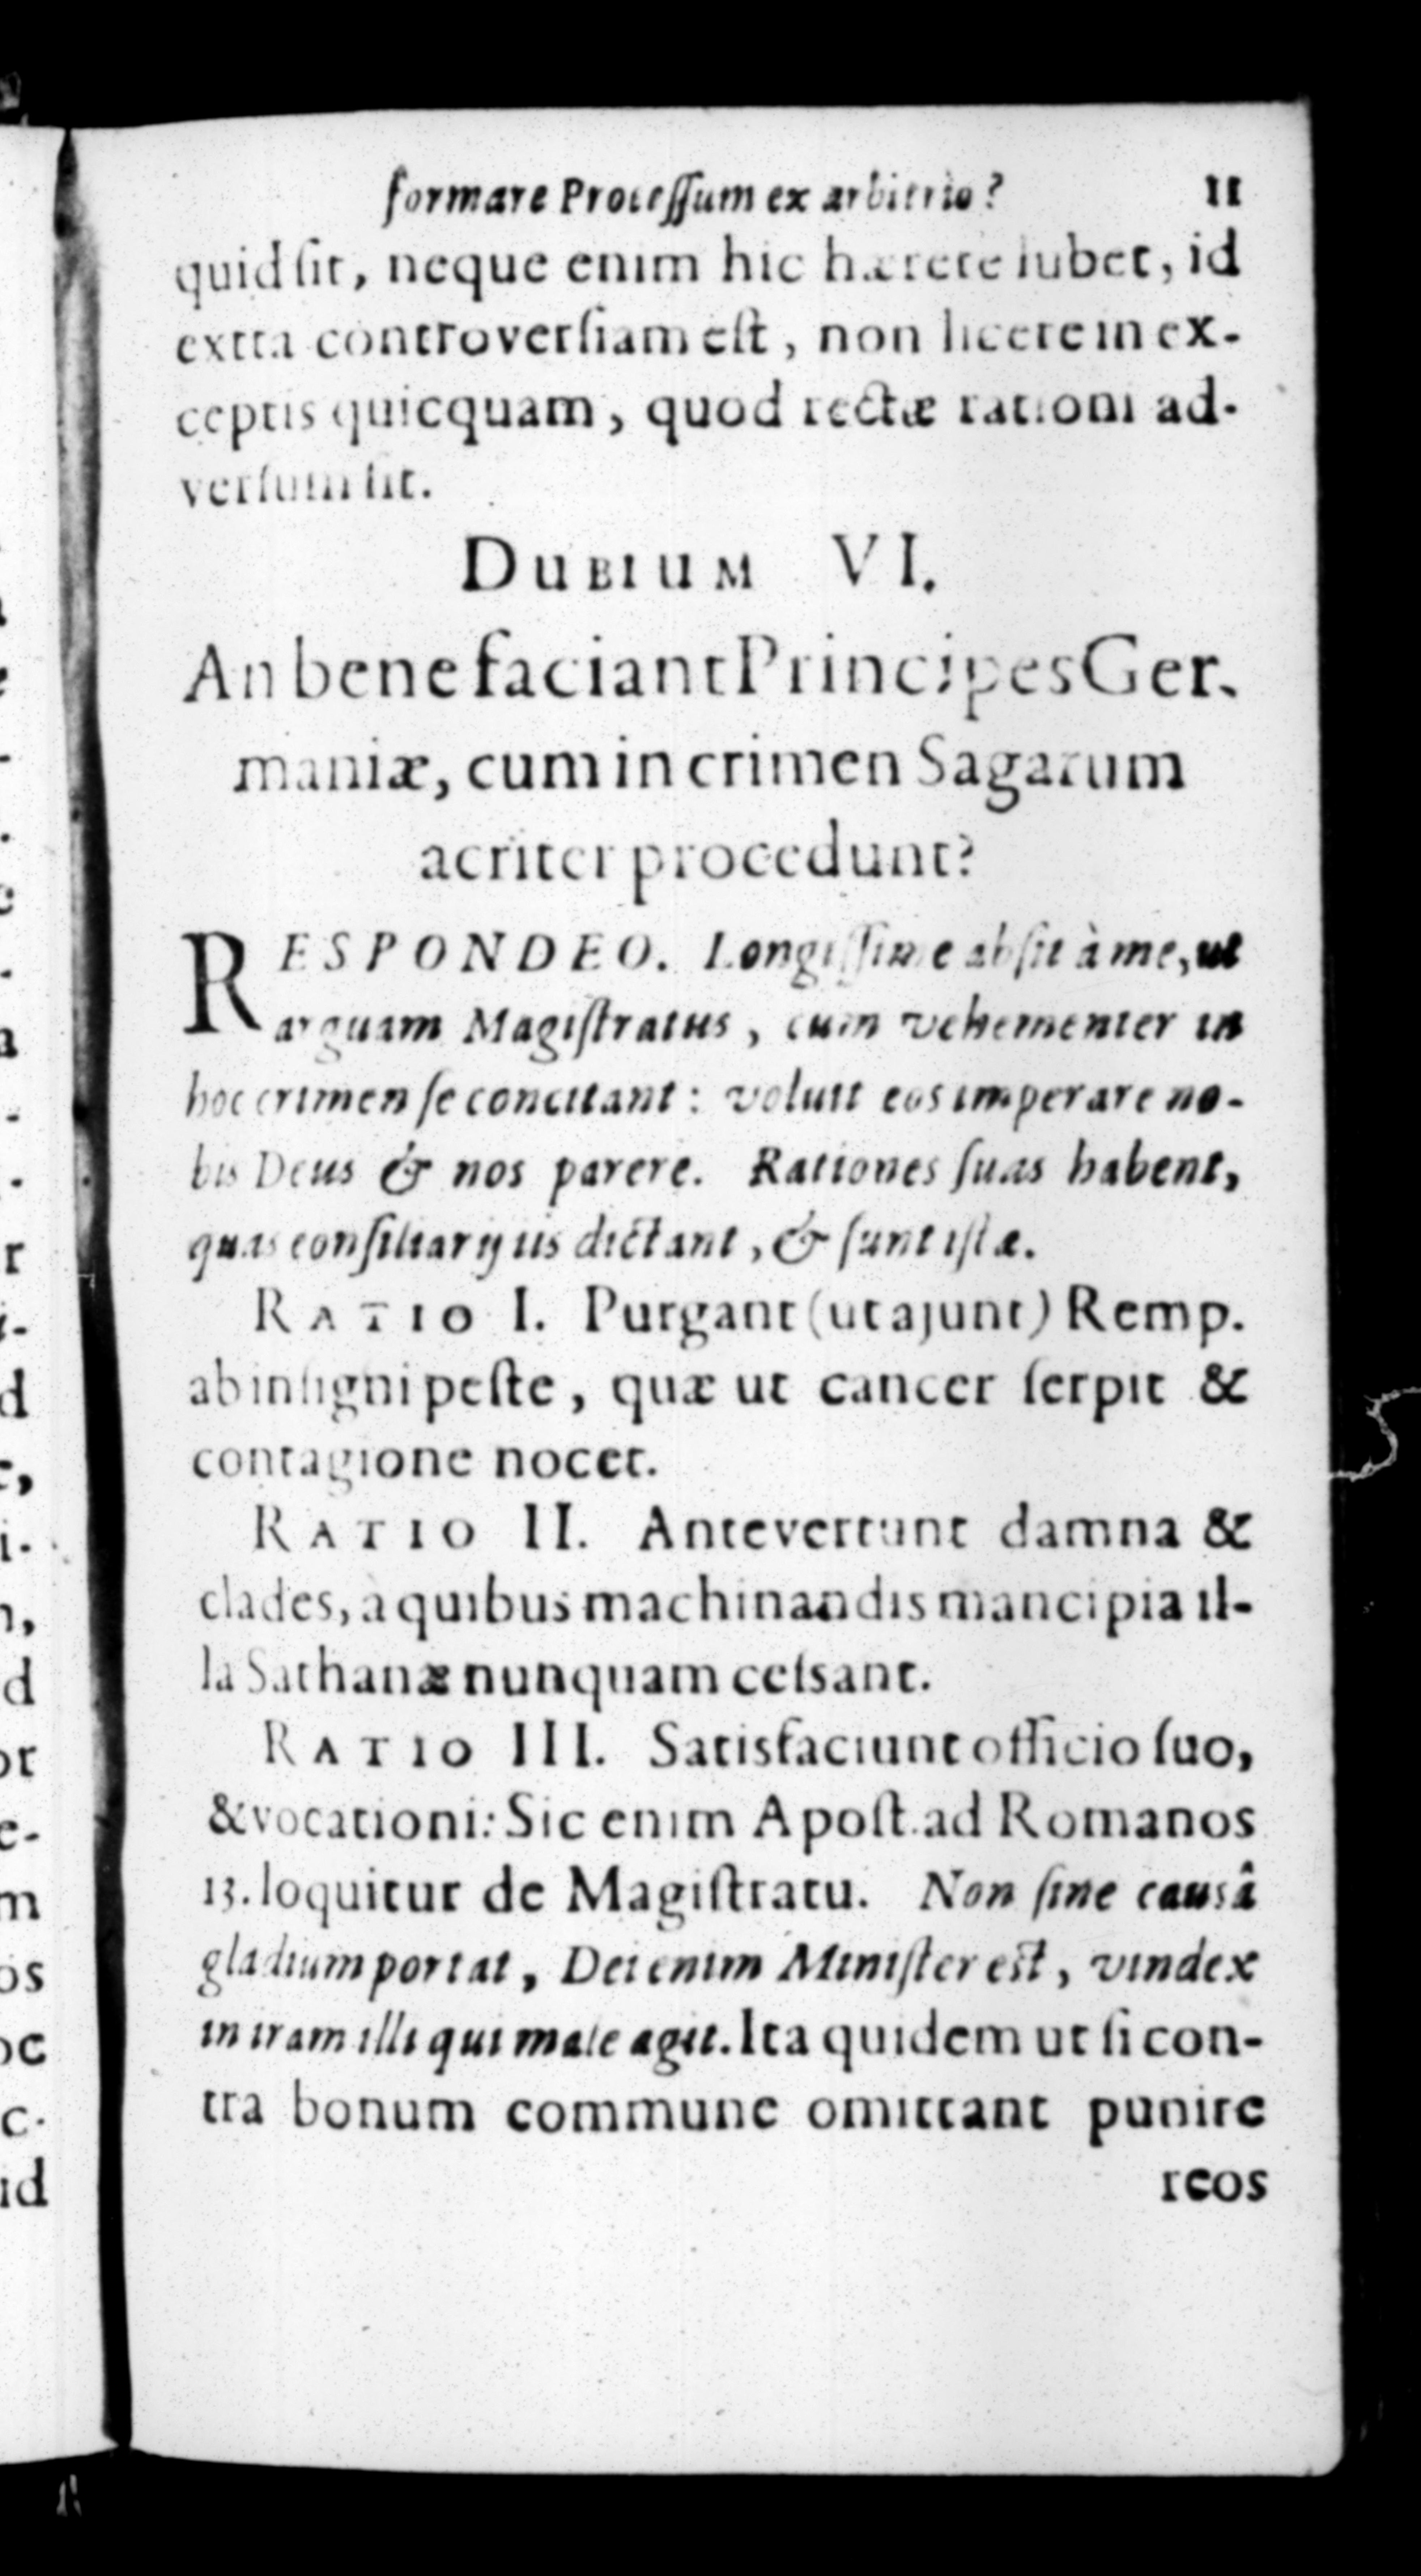 formare Processum ex arbitrio? 11
quid ſit, neque enim hic hærere lubet, id
extra controverſiam eſt, non licere in ex-
ceptis quicquam, quod rectæ rationi ad-
verſum ſit.
DUBIUM VI.
An bene faciant Principes Ger-
maniæ, cum in crimen Sagarum
acriter procedunt?
RESPONDEO. Longiſſime abſit à me, ut
arguam Magiſtratus, cum vehementer in
hoc crimen ſe concitant: voluit eos imperare no-
bis Deus & nos parere. Rationes ſuas habent,
quas conſiliarij iis dictant, & ſunt iſtæ.
RATIO I. Purgant (ut ajunt) Remp.
ab inſigni peſte, quæ ut cancer ſerpit &
contagione nocet.
RATIO II. Antevertunt damna &
clades, à quibus machinandis mancipia il-
la Sathanæ nunquam ceſsant.
RATIO III. Satisfaciunt officio ſuo,
& vocationi: Sic enim Apoſt. ad Romanos
13. loquitur de Magiſtratu. Non ſine causâ
gladium portat, Dei enim Miniſter eſt, vindex
in iram illi qui male agit. Ita quidem ut ſi con-
tra bonum commune omittant punire
reos